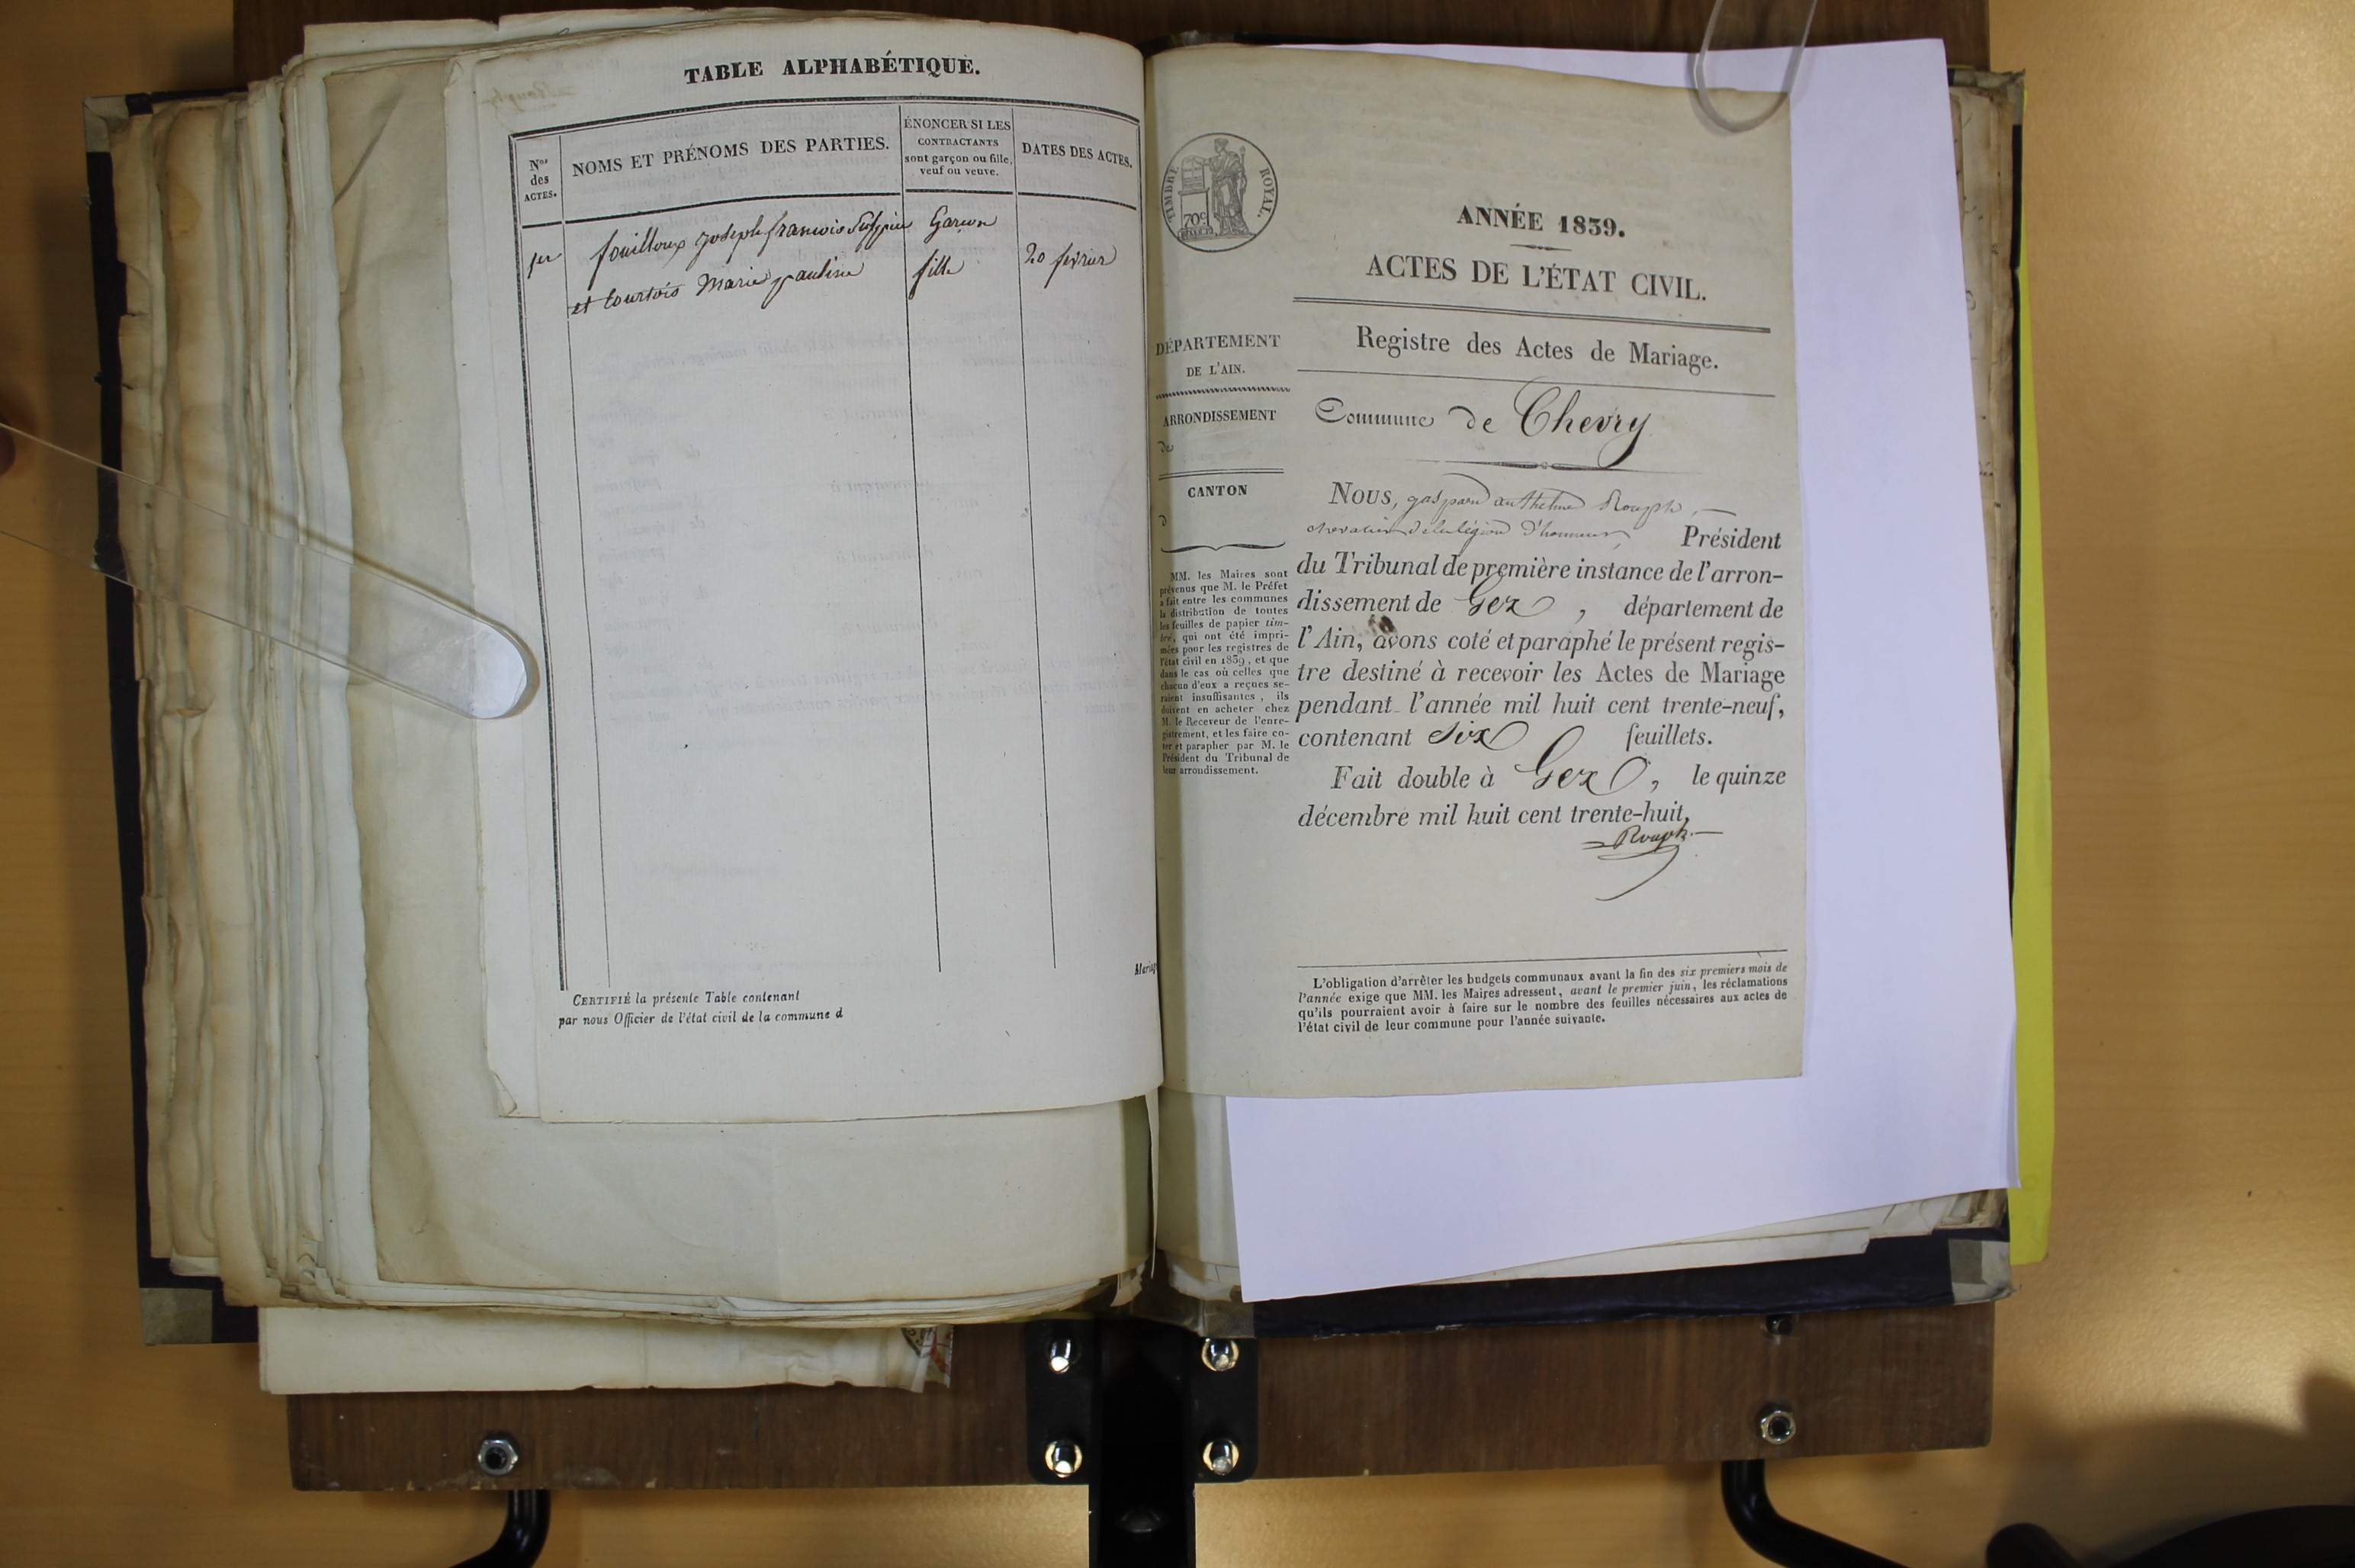 TABLE ALPHABÉTIQUE.
Nos des ACTES.
NOMS ET PRÉNOMS DES PARTIES.
ÉNONCER SI LES
CONTRACTANTS
sont garçon ou fille,
veuf ou veuve.
DATES DES ACTES.
1er fouilloux joseph francois Sulpice Garcon
et Courtois Marie pauline fille 20 fevrier
Mariag
CERTIFIÉ la présente Table contenant
par nous Officier de l'état civil de la commune d
TIMBRE ROYAL.
70c
ANNÉE 1839.
ACTES DE L'ÉTAT CIVIL.
DÉPARTEMENT
DE L'AIN.
ARRONDISSEMENT
de
CANTON
d
MM. les Maires sont
prévenus que M. le Préfet
a fait entre les communes
la distribution de toutes
les feuilles de papier tim-
bré, qui ont été impri-
mées pour les registres de
l'état civil en 1839, et que
dans le cas où celles que
chacun d'eux a reçues se-
raient insuffisantes, ils
doivent en acheter chez
M. le Receveur de l'enre-
gistrement, et les faire co-
ter et parapher par M. le
Président du Tribunal de
leur arrondissement.
Registre des Actes de Mariage.
Commune de Chevry
NOUS, gaspard anthelme Rouph,
chevalier de la légion d'honneur, Président
du Tribunal de première instance de l'arron-
dissement de Gex, département de
l'Ain, avons coté et paraphé le présent regis-
tre destiné à recevoir les Actes de Mariage
pendant l'année mil huit cent trente-neuf,
contenant Six feuillets.
Fait double à Gex, le quinze
décembre mil huit cent trente-huit,
Rouph
L'obligation d'arrêter les budgets communaux avant la fin des six premiers mois de
l'année exige que MM. les Maires adressent, avant le premier juin, les réclamations
qu'ils pourraient avoir à faire sur le nombre des feuilles nécessaires aux actes de
l'état civil de leur commune pour l'année suivante.